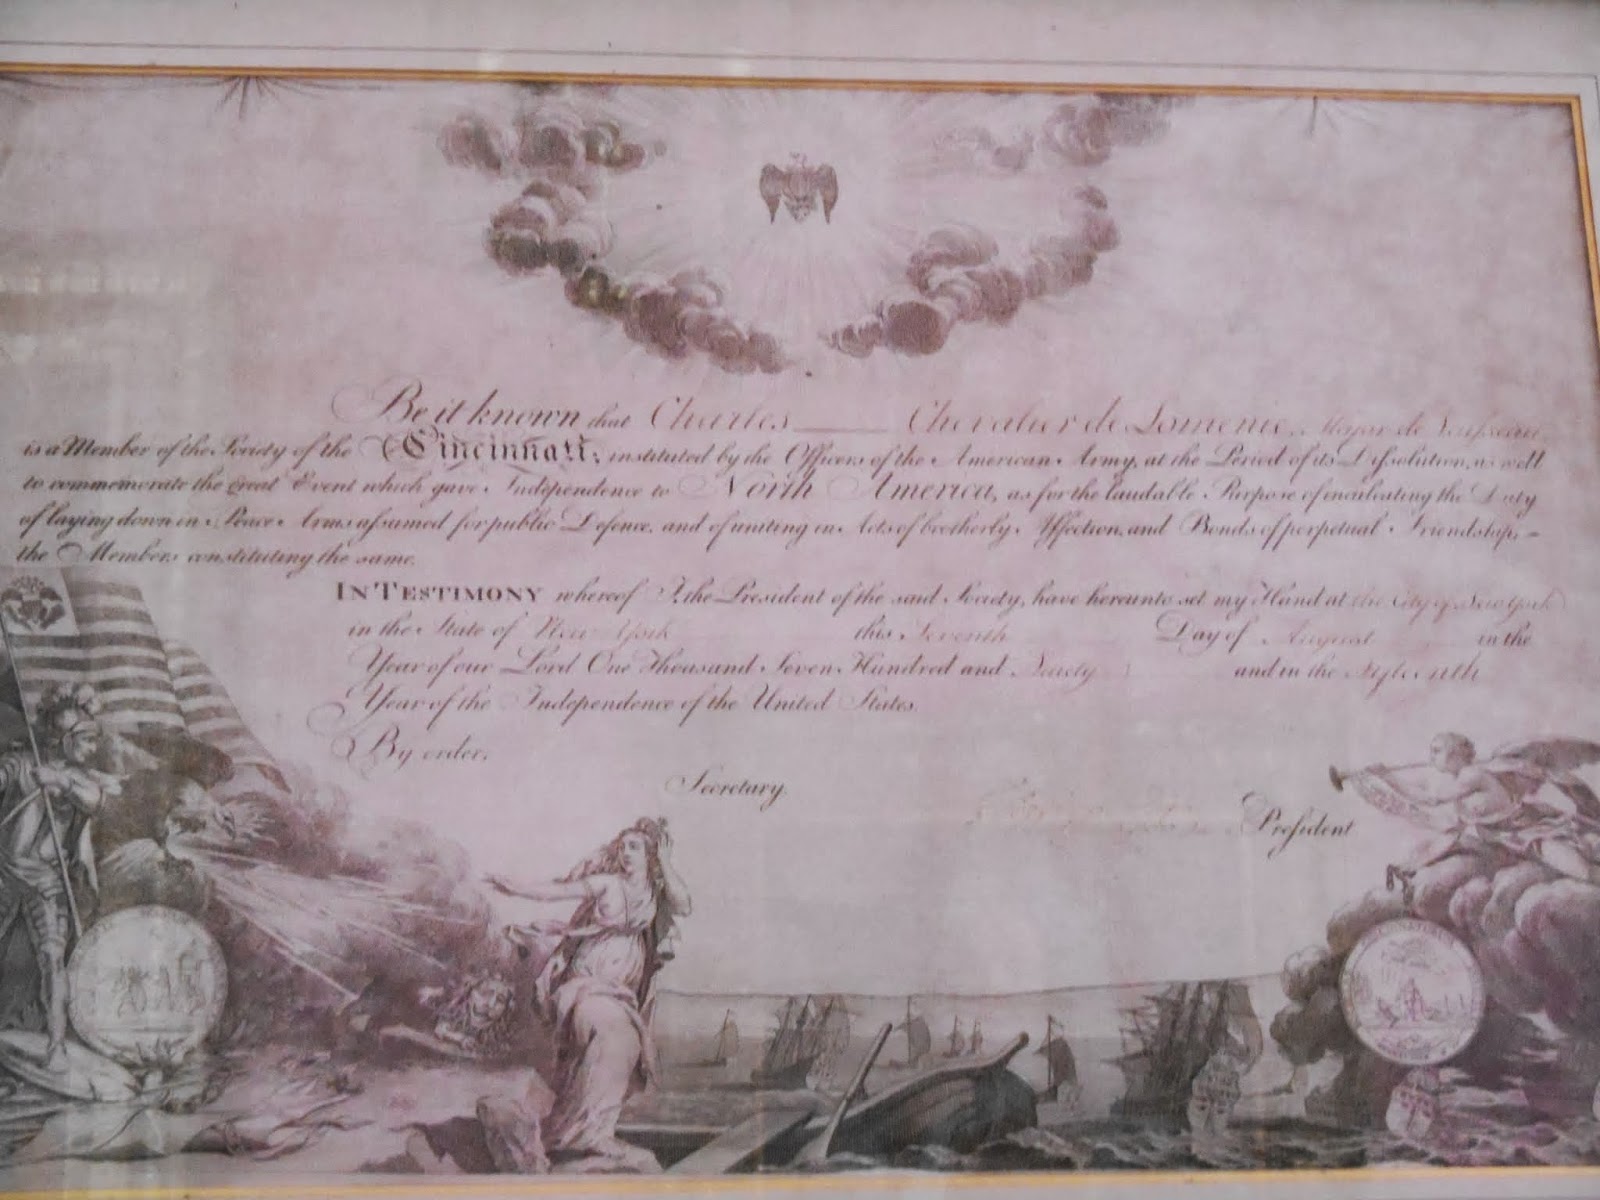 Be it known that Charles Chevalier de Lomenie, Major de Vaisseau
is a Member of the Society of the Cincinnati; instituted by the Officers of the American Army, at the Period of its Dissolution, as well
to commemorate the great Event which gave Independence to North America, as for the laudable Purpose of inculcating the Duty
of laying down in Peace Arms assumed for public Defence, and of uniting in Acts of brotherly Affection, and Bonds of perpetual Friendship,
the Members constituting the same.
In Testimony whereof I, the President of the said Society, have hereunto set my Hand at the City of New York
in the State of New York this Seventh Day of August in the
Year of our Lord One Thousand Seven Hundred and Ninety and in the Fifteenth
Year of the Independence of the United States.
By order,
Secretary.
President